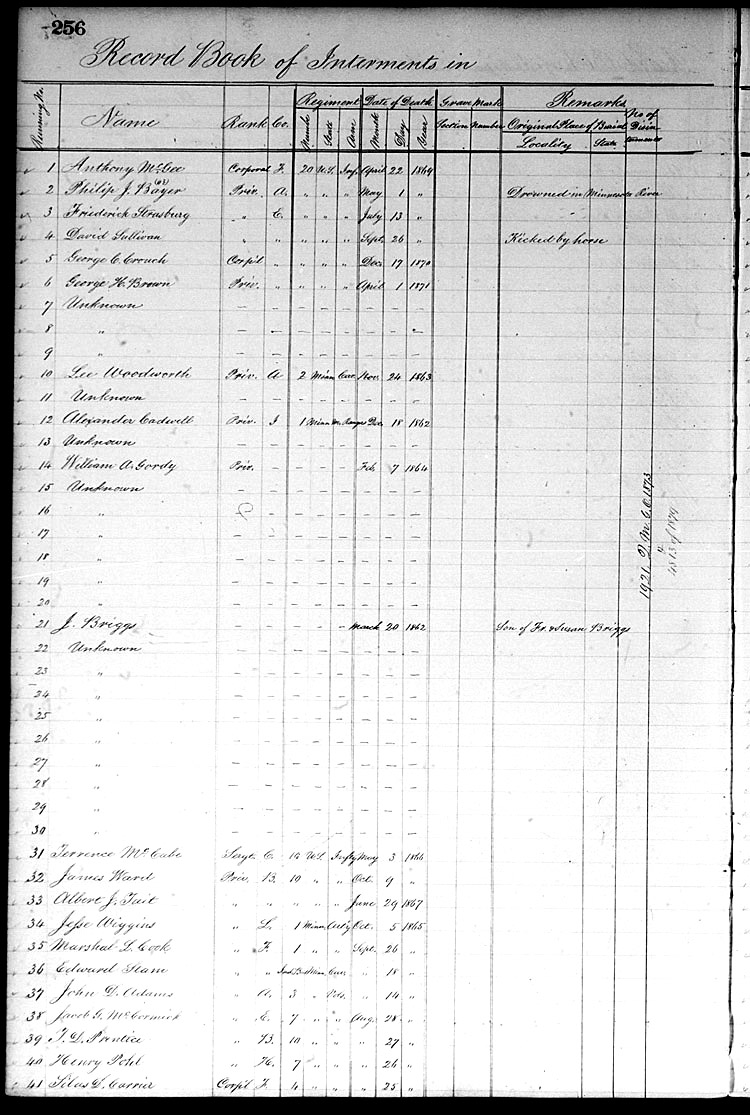 256
Record Book of Interments in
Running No. Name Rank Co. Regiment Date of Death Grave Mark Remarks
Number State Arm Month Day Year Section Number Original Place of Burial No of Disinterment
Locality State
1 Anthony McGee Corporal F. 20 U.S. Inf. April 22 1869
2 Philip J. Bayer (or) Priv. A. " " " May 1 " Drowned in Minnesota River
3 Friederick Strasburg " C. " " " July 13 "
4 David Sullivan " " " " " Sept. 26 " Kicked by horse
5 George C. Crouch Corp'l " " " " Dec. 17 1870
6 George H. Brown Priv. " " " " April 1 1871
7 Unknown — — — — — — — —
8 " — — — — — — — —
9 " — — — — — — — —
10 Lee Woodworth Priv. A 2 Minn Cav. Nov. 24 1863
11 Unknown — — — — — — — —
12 Alexander Cadwell Priv. I 1 Minn M. Rangs Dec. 18 1862
13 Unknown — — — — — — — —
14 William A. Gordy Priv. — — — — Feb. 7 1864
15 Unknown — — — — — — — —
16 " — — — — — — — —
17 " — — — — — — — —
18 " — — — — — — — —
19 " — — — — — — — —
20 " — — — — — — — —
21 J. Briggs — — — — — March 20 1862 Son of Fr. & Susan Briggs
22 Unknown — — — — — — — —
23 " — — — — — — — —
24 " — — — — — — — —
25 " — — — — — — — —
26 " — — — — — — — —
27 " — — — — — — — —
28 " — — — — — — — —
29 " — — — — — — — —
30 " — — — — — — — —
31 Terrence McCabe Sergt. C. 19 U.S. Infty May 3 1866
32 James Ward Priv. B. 10 " " Oct. 9 "
33 Albert J. Tait " " " " " June 29 1867
34 Jesse Wiggins " L. 1 Minn. Art'y Oct. 5 1865
35 Marshal L. Cook " F. 1 " " Sept. 26 "
36 Edward Stam " " Ind. B. Minn. Cav. " 18 "
37 John D. Adams " A. 3 " Vols. " 14 "
38 Jacob G. McCormick " E. 7 " " Aug. 28 "
39 T. D. Prentice " B. 10 " " " 27 "
40 Henry Pohl " H. 7 " " " 26 "
41 Silas D. Carrier Corp'l F. 4 " " " 25 "
1921 Q. M. G. O. 1873
" 4813 of 1879